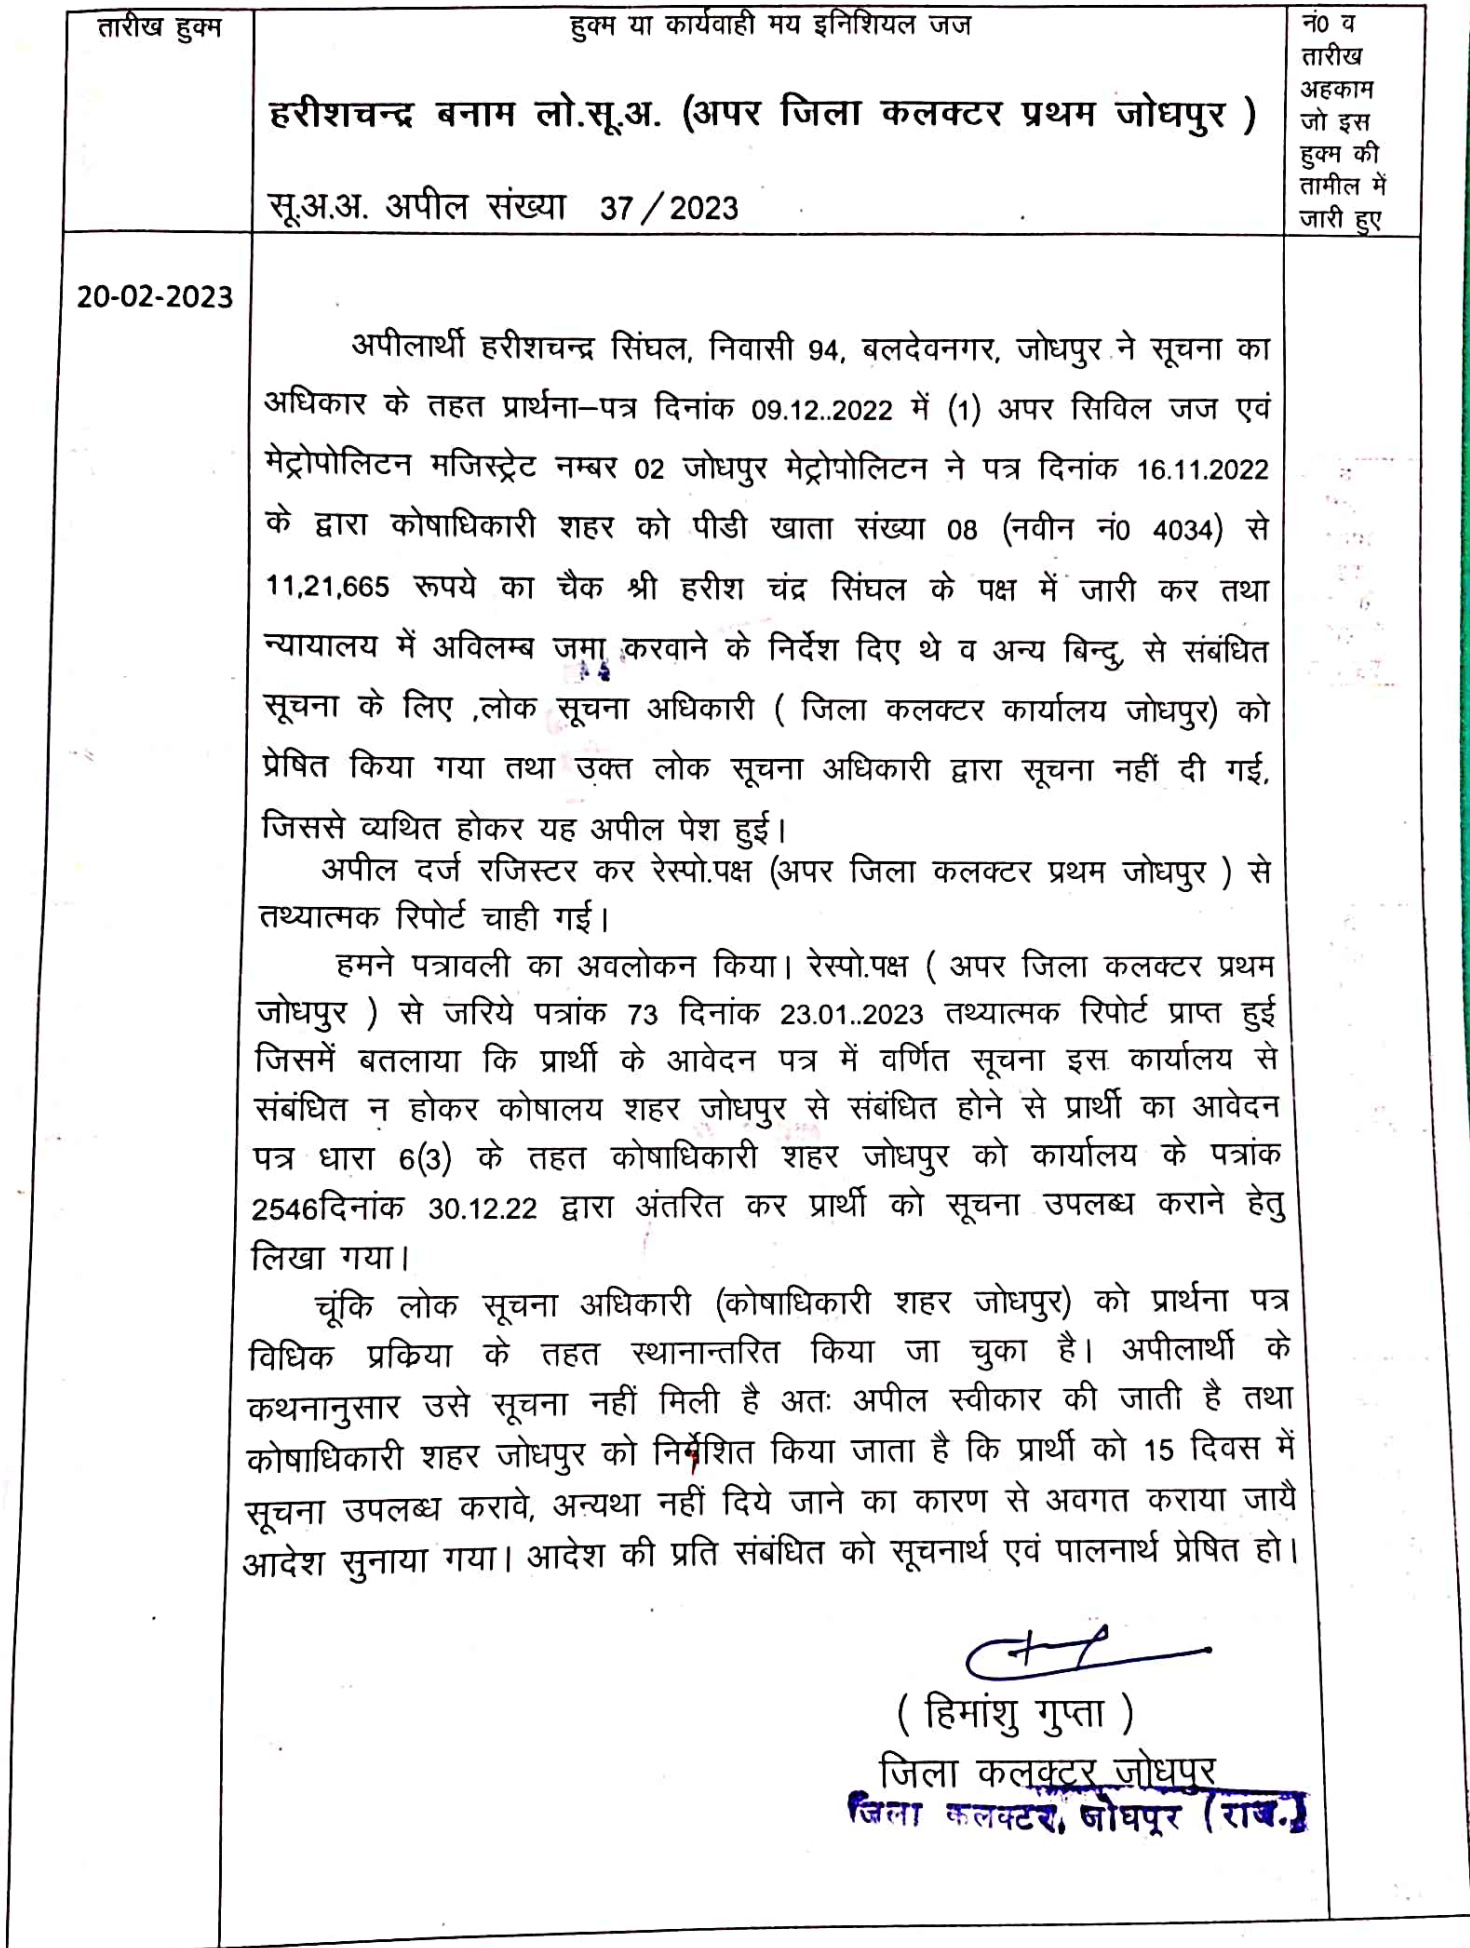 तारीख हुक्म
हुक्म या कार्यवाही मय इनिशियल जज
नं0 व
तारीख
अहकाम
जो इस
हुक्म की
तामील में
जारी हुए
हरीशचन्द्र बनाम लो.सू.अ. (अपर जिला कलक्टर प्रथम जोधपुर )
सू.अ.अ. अपील संख्या 37/2023
20-02-2023
अपीलार्थी हरीशचन्द्र सिंघल, निवासी 94, बलदेवनगर, जोधपुर ने सूचना का
अधिकार के तहत प्रार्थना–पत्र दिनांक 09.12..2022 में (1) अपर सिविल जज एवं
मेट्रोपोलिटन मजिस्ट्रेट नम्बर 02 जोधपुर मेट्रोपोलिटन ने पत्र दिनांक 16.11.2022
के द्वारा कोषाधिकारी शहर को पीडी खाता संख्या 08 (नवीन नं0 4034) से
11,21,665 रूपये का चैक श्री हरीश चंद्र सिंघल के पक्ष में जारी कर तथा
न्यायालय में अविलम्ब जमा करवाने के निर्देश दिए थे व अन्य बिन्दु, से संबंधित
सूचना के लिए ,लोक सूचना अधिकारी ( जिला कलक्टर कार्यालय जोधपुर) को
प्रेषित किया गया तथा उक्त लोक सूचना अधिकारी द्वारा सूचना नहीं दी गई,
जिससे व्यथित होकर यह अपील पेश हुई।
अपील दर्ज रजिस्टर कर रेस्पो.पक्ष (अपर जिला कलक्टर प्रथम जोधपुर ) से
तथ्यात्मक रिपोर्ट चाही गई।
हमने पत्रावली का अवलोकन किया। रेस्पो.पक्ष ( अपर जिला कलक्टर प्रथम
जोधपुर ) से जरिये पत्रांक 73 दिनांक 23.01..2023 तथ्यात्मक रिपोर्ट प्राप्त हुई
जिसमें बतलाया कि प्रार्थी के आवेदन पत्र में वर्णित सूचना इस कार्यालय से
संबंधित न होकर कोषालय शहर जोधपुर से संबंधित होने से प्रार्थी का आवेदन
पत्र धारा 6(3) के तहत कोषाधिकारी शहर जोधपुर को कार्यालय के पत्रांक
2546दिनांक 30.12.22 द्वारा अंतरित कर प्रार्थी को सूचना उपलब्ध कराने हेतु
लिखा गया।
चूंकि लोक सूचना अधिकारी (कोषाधिकारी शहर जोधपुर) को प्रार्थना पत्र
विधिक प्रक्रिया के तहत स्थानान्तरित किया जा चुका है। अपीलार्थी के
कथनानुसार उसे सूचना नहीं मिली है अतः अपील स्वीकार की जाती है तथा
कोषाधिकारी शहर जोधपुर को किया जाता है कि प्रार्थी को 15 दिवस में
सूचना उपलब्ध करावे, अन्यथा नहीं दिये जाने का कारण से अवगत कराया जायै
आदेश सुनाया गया। आदेश की प्रति संबंधित को सूचनार्थ एवं पालनार्थ प्रेषित हो।
( हिमांशु गुप्ता )
जिला कलक्टर जोधपुर
जिला कलक्टर, जोधपुर (राज.)